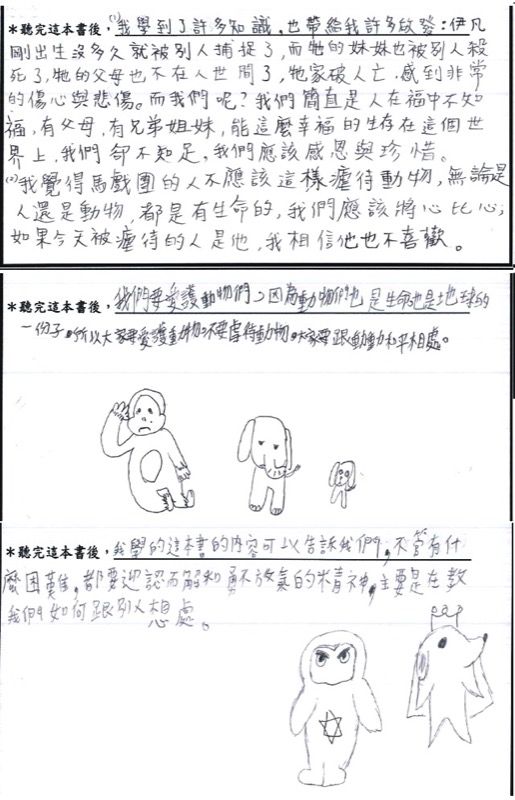 *聽完這本書後，⑴我學到了許多知識，也帶給我許多啟發：伊凡
剛出生沒多久就被別人捕捉了，而牠的妹妹也被別人殺
死了，牠的父母也不在人世間了，牠家破人亡，感到非常
的傷心與悲傷。而我們呢？我們簡直是人在福中不知
福，有父母，有兄弟姐妹，能這麼幸福的生存在這個世
界上，我們卻不知足，我們應該感恩與珍惜。
⑵我覺得馬戲團的人不應該這樣瘧待動物，無論是
人還是動物，都是有生命的，我們應該將心比心；
如果今天被瘧待的人是他，我相信他也不喜歡。
*聽完這本書後，我們要愛護動物們，因為動物們也是生命也是地球的
一份子。所以大家要愛護動物，不要虐待動物。大家要跟動動和平相處。
*聽完這本書後，我學的這本書的內容可以告訴我們，不管有什
麼困難，都要迎認而解和勇不放棄的精神，主要是在教
我們如何跟別人想處。